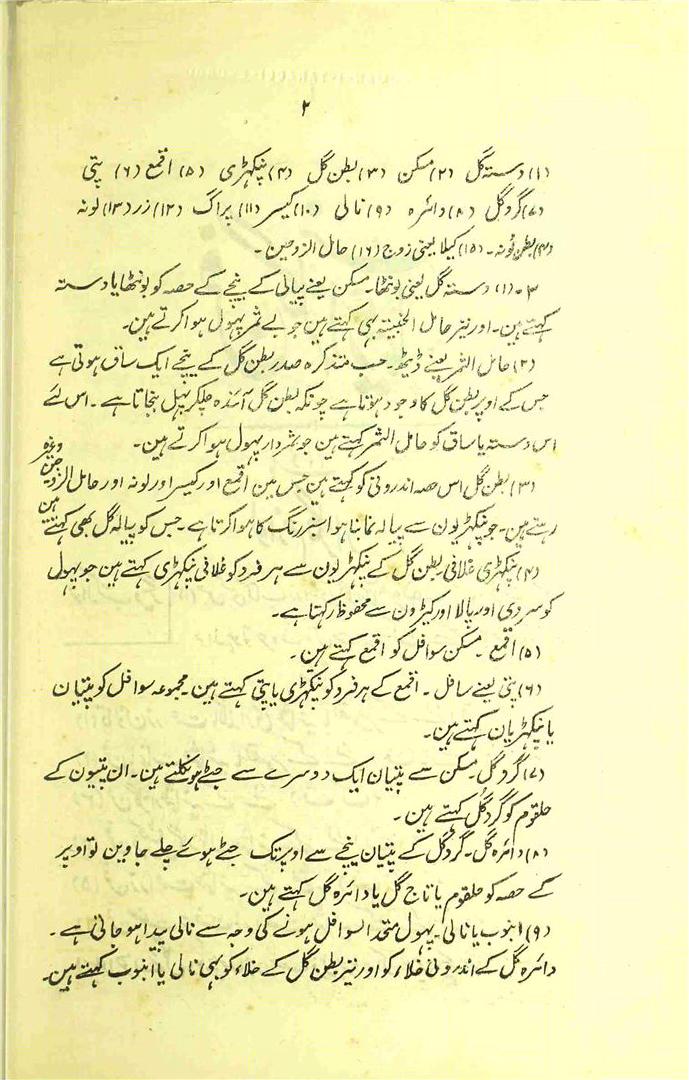 ۲
(۱) دستہ گل (۲) مسکن (۳) بطن گل (۴) پنکہڑی (۵) اقمع (۶) پتی
(۷) گردگل (۸) دائرہ (۹) نالی (۱۰) کیسر (۱۱) پراگ (۱۲) زر (۱۳) لونہ
(۱۴) بطن لونہ۔ (۱۵) کیلا یعنی زوج (۱۶) حامل الزوجین۔
۳۔ (۱) دستہ گل یعنی بونٹھا۔ مسکن یعنے پیالی کے نیچے کے حصہ کو بونٹھا یا دستہ
کہتے ہین۔ اور نیز حامل الخبیتہ بہی کہتے ہین جو بے ثمر پہول ہوا کرتے ہین۔
(۲) حامل الثمر یعنے ڈیٹھ۔ حسب متذکرہ صدر بطن گل کے نیچے ایک ساق ہوتی ہے
جس کے اوپر بطن گل کا وجود ہوتا ہے چونکہ بطن گل آئندہ چلکر پہل بنجاتا ہے۔ اس لئے
اس دستہ یا ساق کو حامل الثمر کہتے ہین جو ثمردار پہول ہوا کرتے ہین۔
(۳) بطن گل اس حصہ اندرونی کو کہتے ہین جس مین اقمع اور کیسر اور لونہ اور حامل الزوجین وغیرہ
رہتے ہین۔ جو پنکہڑیون سے پیالہ نما بنا ہوا سبز رنگ کا ہوا کرتا ہے۔ جس کو پیالہ گل بھی کہتے ہین
(۴) پنکہڑی غلافی بطن گل کے پنکہڑیون سے ہر فرد کو غلافی پنکہڑی کہتے ہین جو پہول
کو سردی اور پالا اور کیڑون سے محفوظ رکہتا ہے۔
(۵) اقمع ۔ مسکن سوافل کو اقمع کہتے ہین۔
(۶) پتی یعنے سافل ۔ اقمع کے ہر فرد کو پنکہڑی یا پتی کہتے ہین۔ مجموعہ سوافل کو پتیان
یا پنکہڑیان کہتے ہین۔
(۷) گردگل۔ مسکن سے پتیان ایک دوسرے سے جٹے ہو نکلتے ہین۔ ان پتیون کے
حلقوم کو گردگُل کہتے ہین ۔
(۸) دائرہ گل۔ گردگل کے پتیان نیچے سے اوپر تک جٹے ہوئے چلے جاوین تو اوپر
کے حصہ کو حلقوم یا تاج گل یا دائرہ گل کہتے ہین۔
(۹) انبوب یا نالی۔ پہول متحد السوافل ہونے کی وجہ سے نالی پیدا ہو جاتی ہے ۔
دائرہ گل کے اندرونی خلاء کو اور نیز بطن گل کے خلاء کو بہی نالی یا انبوب کہتے ہین۔